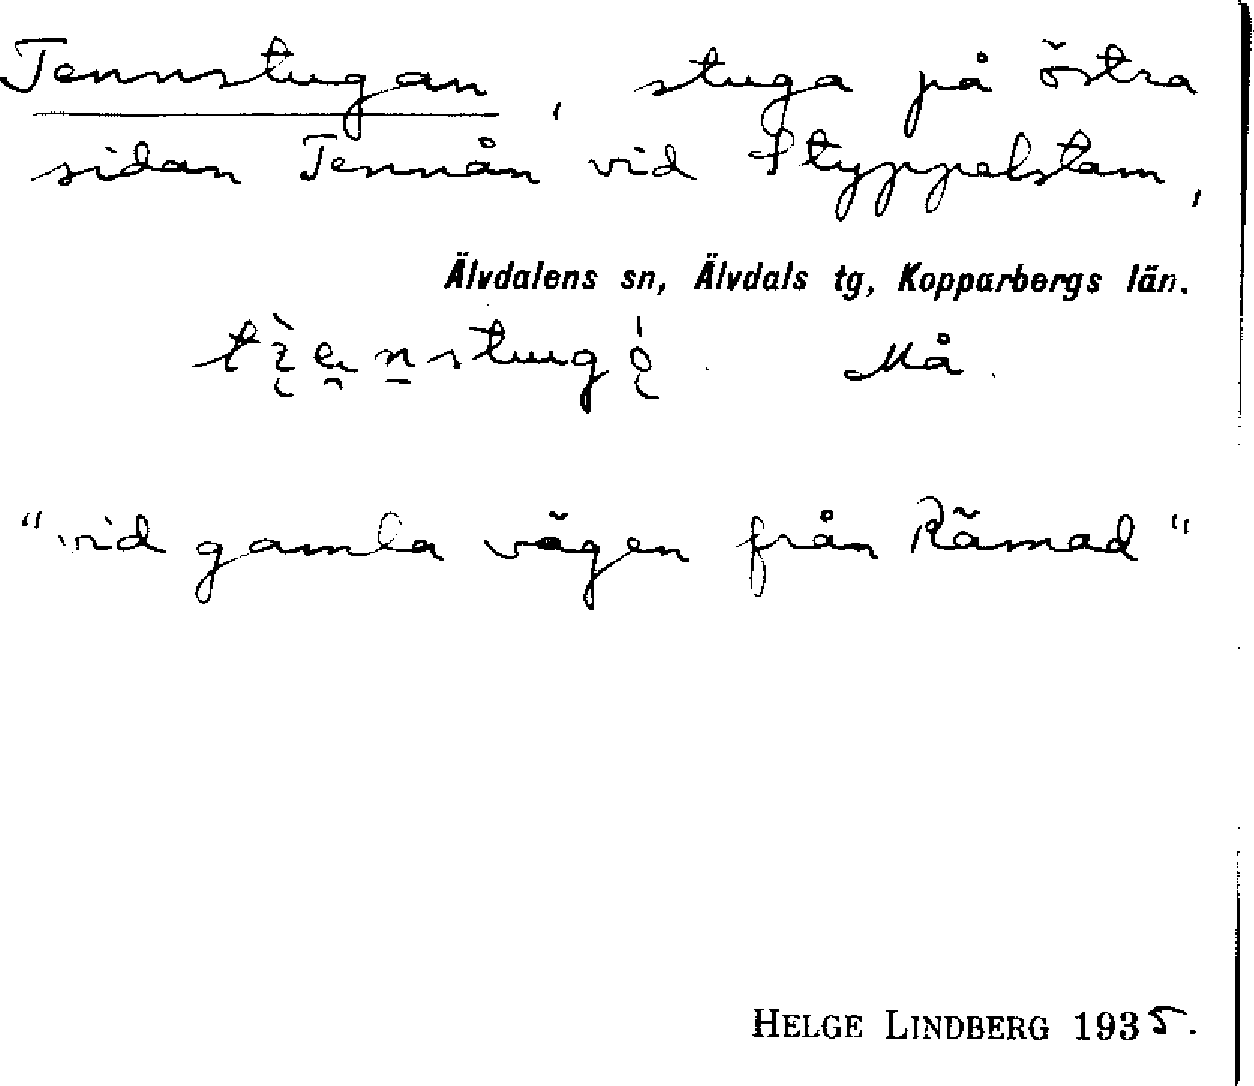 Tennstugan, stuga på östra
sidan Tennån vid Styppelstam,
Älvdalens sn, Älvdals tg, Kopparbergs län.
Må.
"vid gamla vägen från Rämad"
HELGE LINDBERG 1935.